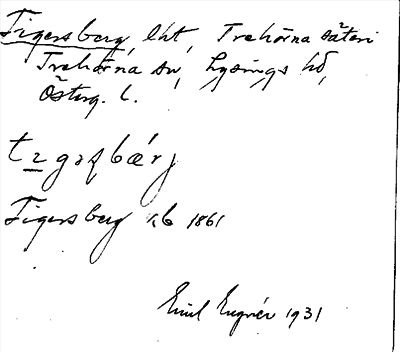 Tigersberg, lht, Trehörna säteri
Trehörna sn, Lysings hd,
Österg. l.
Tigersberg kb 1861
Emil Engnér 1931